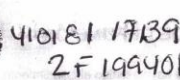 410181 17139
2F199401